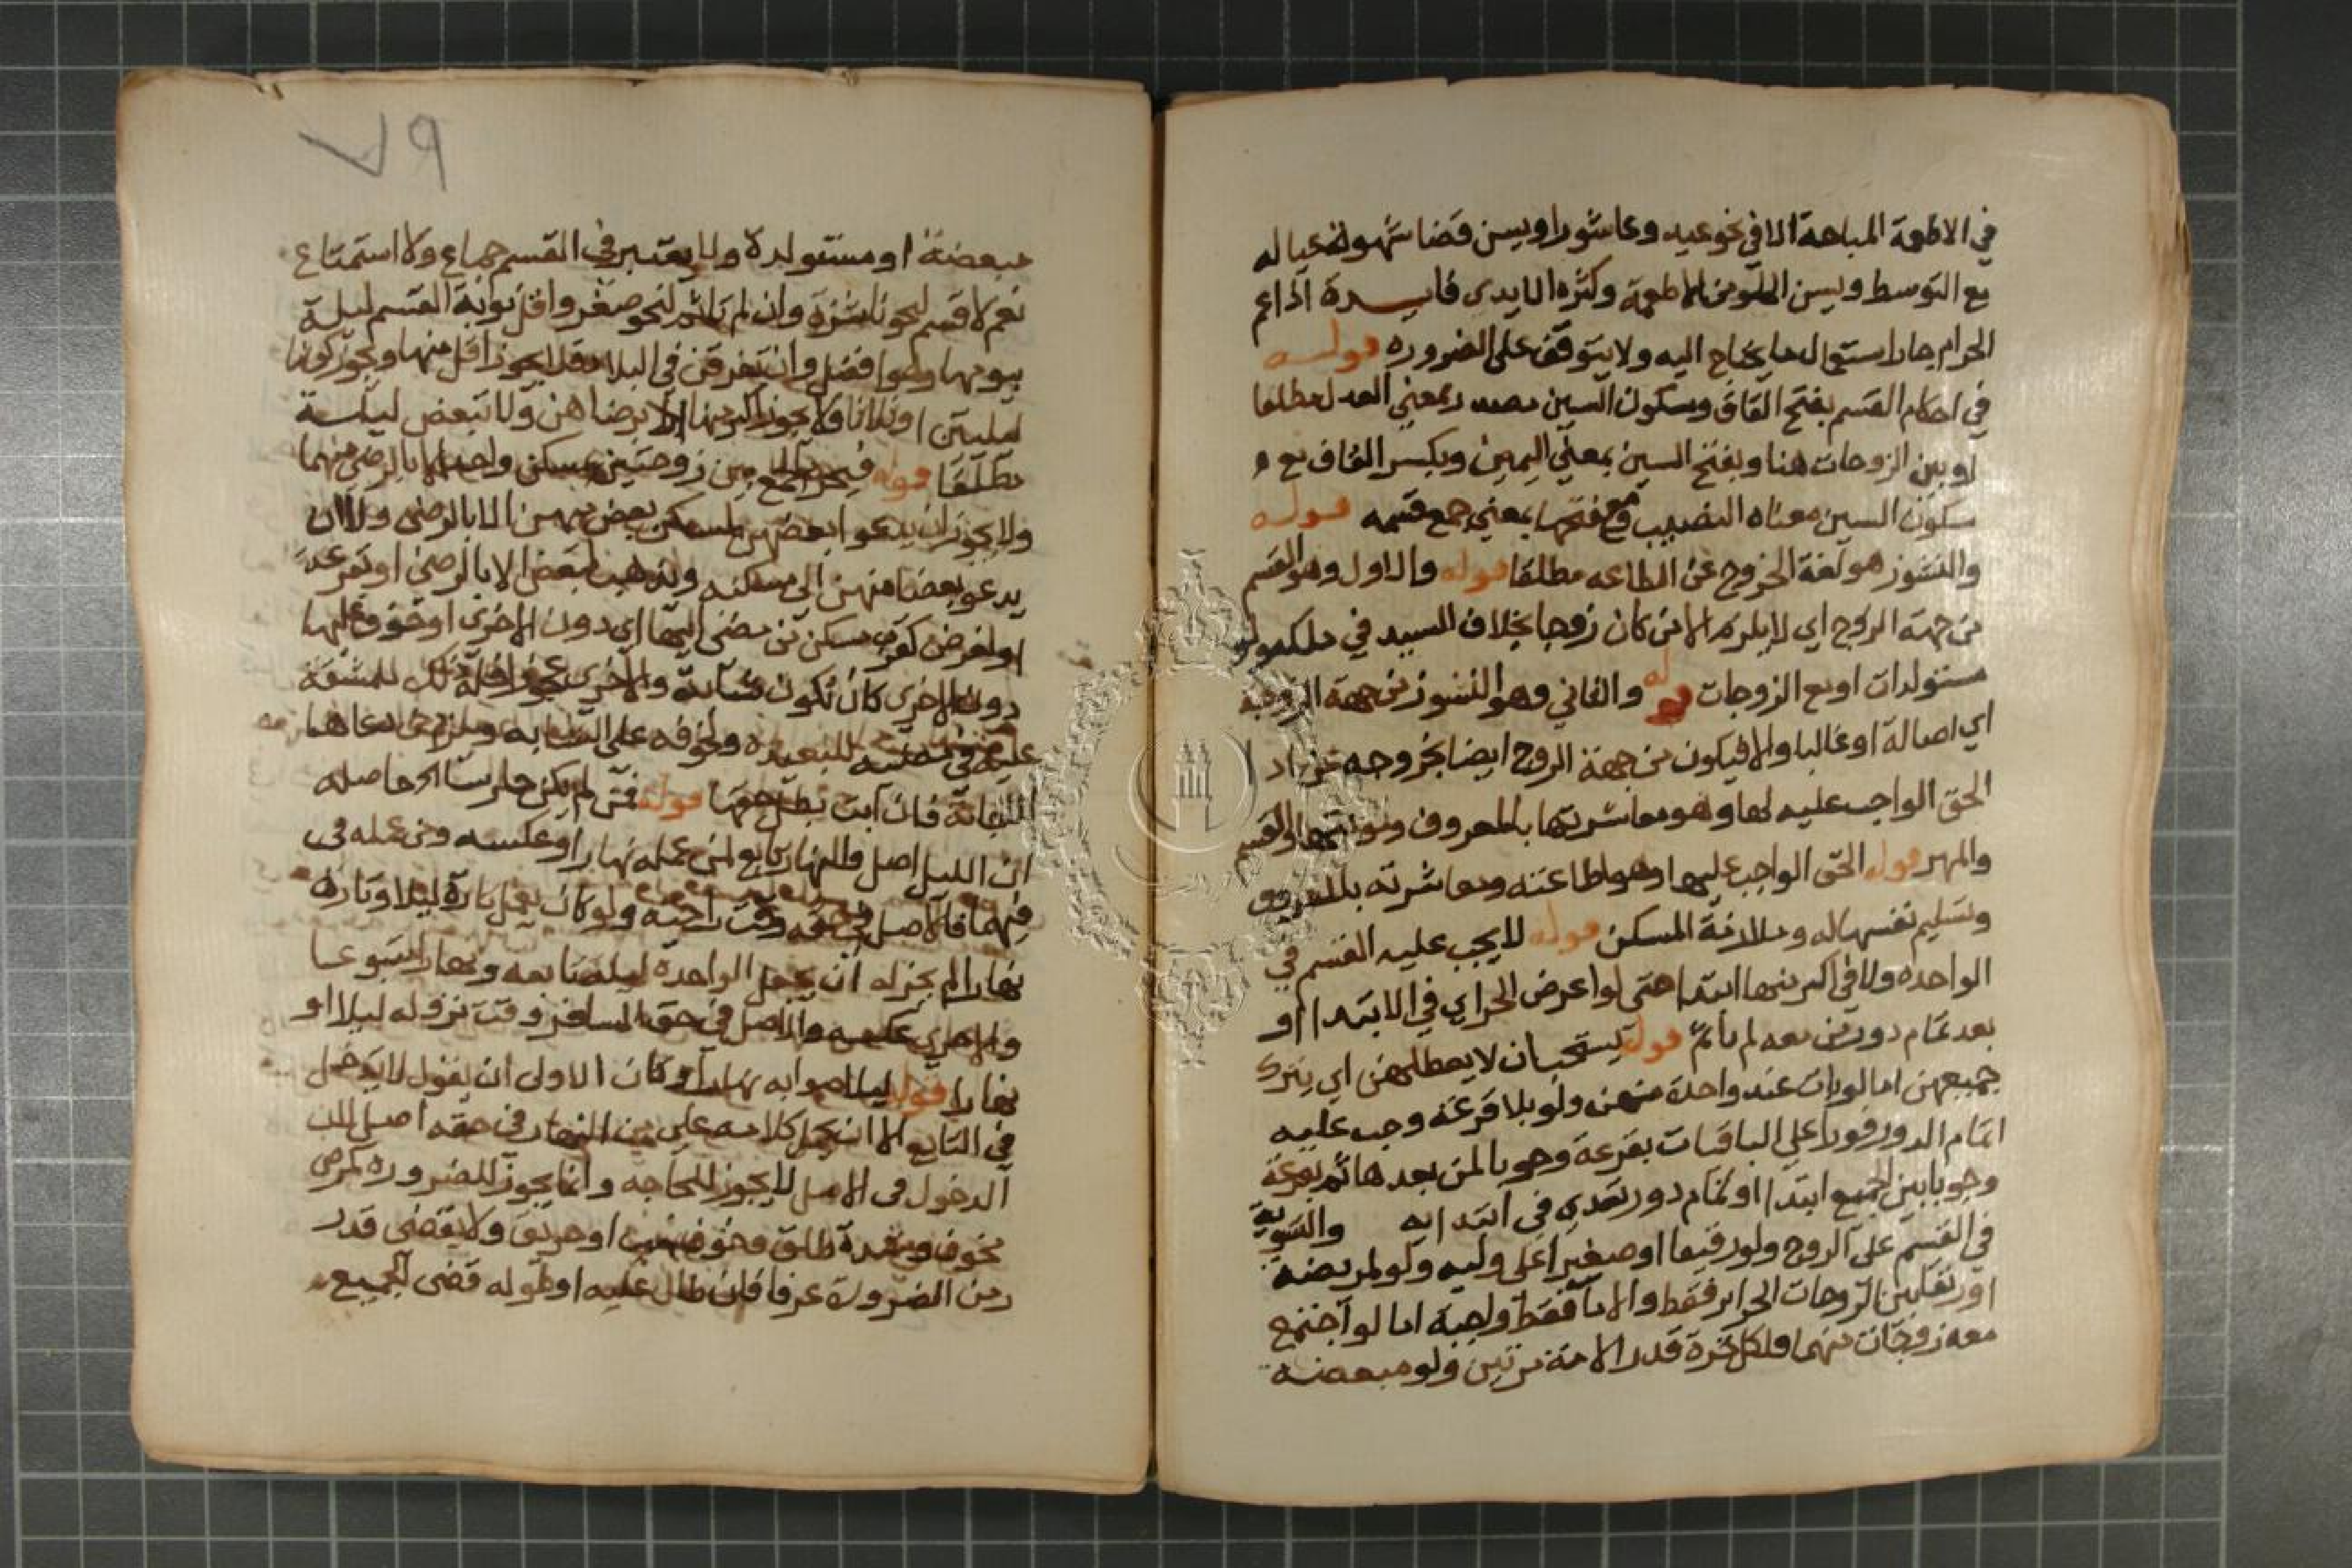 في الاطعمة المباحة الا في نحو عيد وعاشورا ويسن قضا شهوة عياله
مع التوسط ويسن الحلو من الاطعمة وكثرة الايدي فايدة اذا عم
الحرام جاز استعمال ما يحتاج اليه ولا يتوقف على الضروره قوله
في احكام القسم بفتح القاف وسكون السين مصدر بمعني العدل مطلقا
او بين الزوجات هنا وبفتح السين بمعني اليمين وبكسر القاف مع
سكون السين معناه النصيب مع فتحها بمعني جمع قسمه قوله
والنشوز هو لغة الخروج عن الطاعه مطلقا قوله والاول وهو القسم
من جهة الزوج اي لا يلزم الا من كان زوجا بخلاف السيد في ملكه ولو
مستولدات او مع الزوجات قوله والثاني وهو النشوز من جهة الزوجة
اي اصالة او غالبا والا فيكون من جهة الزوج ايضا بخروجه عن اد ا
الحق الواجب عليه لها وهو معاشرتها بالمعروف ومونتها والقسم
والمهر قوله الحق الواجب عليها وهو اطاعته ومعاشرته بالمعروف
وتسليم نفسها له وملازمة المسكن قوله لا يجب عليه القسم في
الواحده ولا في اكثر منها ابتدا حتى لو اعرض الحراير في الابتدا او
بعد تمام دورتين بعد لم ياثم قوله يستحب ان لا يعطلهن اي يترك
جميعهن اما لو بات عند واحدة منهن ولو بلا قرعة وجب عليه
اتمام الدور فورا على الباقيات بقرعة وجوبا لمن بعدها ثم بقرعة
وجوبا بين الجميع ابتدا او تمام دور تعدي في ابتدايه والتسوية
في القسم على الزوج ولو رقيقا او صغيرا على وليه ولو لمريضه
او رتقا بين الزوجات الحراير فقط والاما فقط واجبة اما لو اجتمع
معه زوجتان منهما فلكل حرة قدر الامة مرتين ولو مبعضة
٧٩
مبعضة او مستولدة ولا يعتبر في القسم جماع ولا استمتاع
نعم لا قسم لنحو ناشزة وان لم تاثم لنحو صغر واقل نوبة القسم ليلة
بيومها وهو افضل وان تفرقن في البلاد فلا يجوز اقل منها ويجوز كونها
ليلتين او ثلاثا ولا يجوز اكثر منها الا برضاهن ولا تبعض ليلة
مطلقا قوله فيحرم الجمع بين زوجتين بمسكن واحد الا بالرضى منهما
ولا يجوز ان يدعوا بعضهن لمسكن بعض منهن الا بالرضى ولا ان
يدعو بعضا منهن الى مسكنه ويذهب لبعض الا بالرضى او بقرعة
او لغرض كقرب مسكن من مضى اليها اي دون الاخرى او خوف عليها
دون الاخرى كان تكون شابة والاخرى عجوز فله ذلك للمشقة
عليه في للبعيده ولخوفه على الشابه ويلزم من دعاها
الاجابة فان ابت بطل حقها قوله فمن لم يكن حارسا الخ حاصله
ان الليل اصل والنهار تابع لمن عمله نهارا وعكسه ومن عمله في
فيهما فالاصل في حقه وقت راحته ولو كان يعمل تارة ليلا وتارة
نهارا لم يجز له ان يجعل لواحدة ليلة تابعه ونهارا متبوعا
والاخرى عكسه والاصل في حق المسافر وقت نزوله ليلا او
نهارا قوله به نهارا كان الاولى ان يقول لا يدخل
في التابع الا ان يحمل كلامه على من النهار في حقه اصل لان
الدخول في الاصل لا يجوز للحاجه وانما يجوز للضروره كمرض
مخوف وشدة طلق وخوف نهب او حريق ولا يقضى قدر
زمن الضرورة عرفا فان طال عليه او طوله قضى الجميع